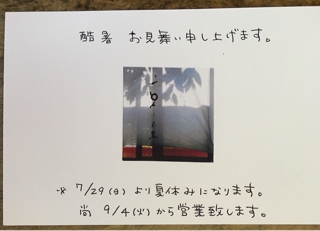 酷暑 お見舞い申し上げます。
※ 7/29(日)より夏休みになります。
尚 9/4(火)から営業致します。